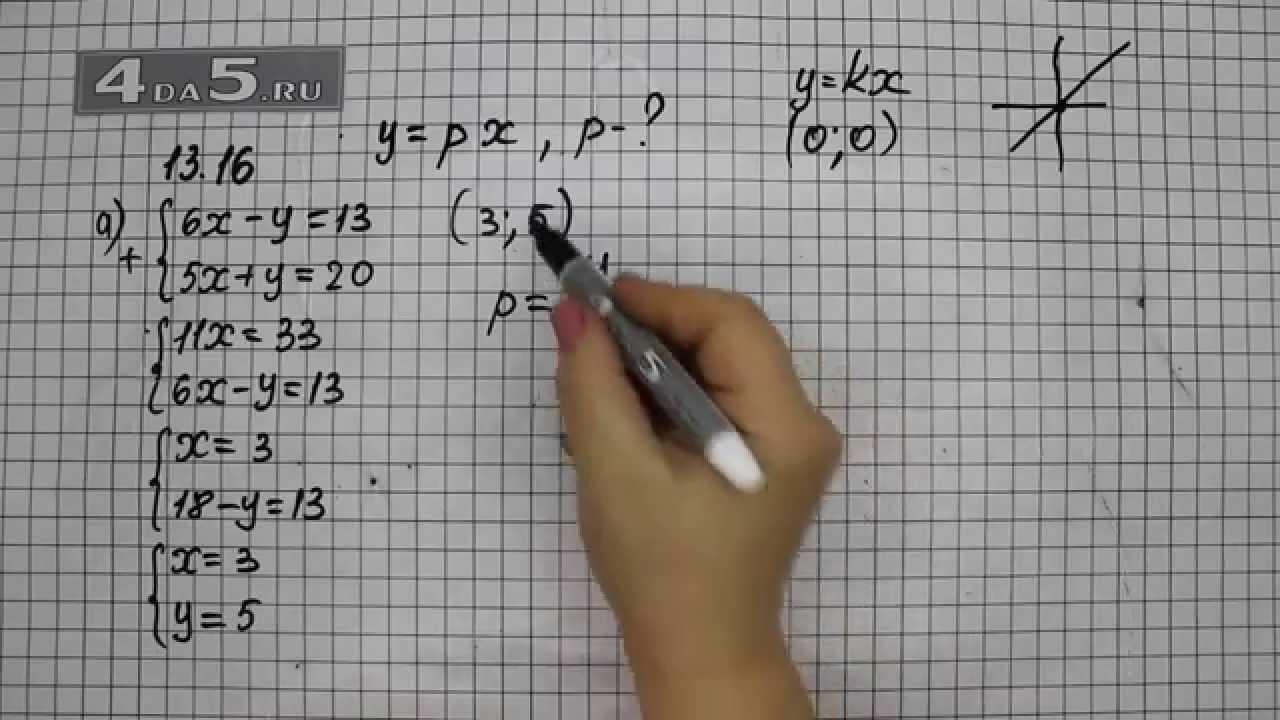 4DA5.RU
y = kx
(0; 0)
y = px, p - ?
13.16
а) { 6x - y = 13
+ { 5x + y = 20
(3; 5)
p =
{ 11x = 33
{ 6x - y = 13
{ x = 3
{ 18 - y = 13
{ x = 3
{ y = 5